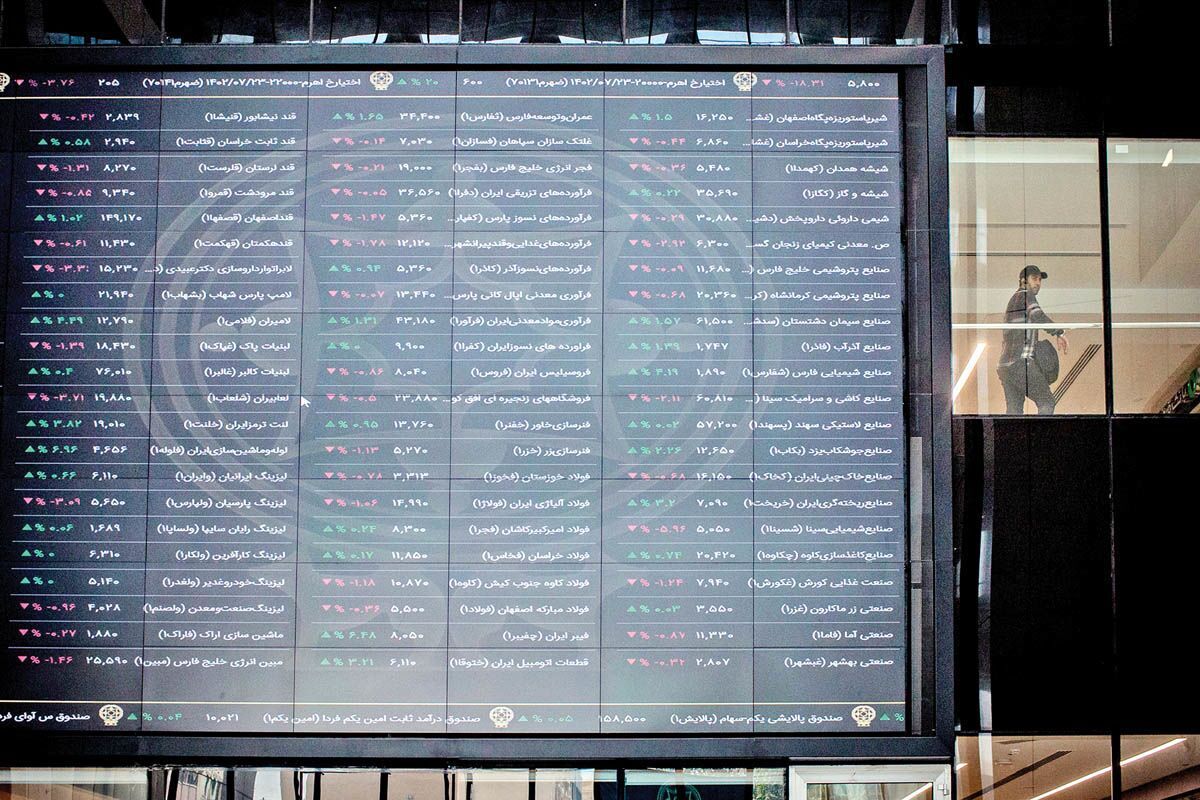 ۵,۸۰۰ ▼ % -۱۸.۳۱ اختیارخ اهرم-۲۰۰۰۰-۱۴۰۲/۰۷/۲۳ (ضهرم۷۰۱۳۱) ۶۰۰ ▲ % ۲۰ اختیارخ اهرم-۲۲۰۰۰-۱۴۰۲/۰۷/۲۳ (ضهرم۷۰۱۴۱) ۲۰۵ ▼ % -۳.۷۶
شیرپاستوریزه‌پگاه‌اصفهان (غش... ۱۶,۲۵۰ ▲ % ۱.۵ عمران‌وتوسعه‌فارس (ثفارس۱) ۳۴,۴۰۰ ▲ % ۱.۶۵ قند نیشابور (قنیشا۱) ۲,۸۳۹ ▼ % -۰.۴۲
شیرپاستوریزه‌پگاه‌خراسان (غشا... ۶,۸۶۰ ▼ % -۰.۴۴ غلتک سازان سپاهان (فسازان۱) ۷,۰۳۰ ▼ % -۰.۱۴ قند ثابت خراسان (قثابت۱) ۲,۹۴۰ ▲ % ۰.۵۸
شیشه همدان (کهمدا۱) ۵,۴۸۰ ▼ % -۰.۳۶ فجر انرژی خلیج فارس (بفجر۱) ۱۹,۰۰۰ ▼ % -۰.۲۱ قند لرستان (قلرست۱) ۸,۲۷۰ ▼ % -۱.۳۱
شیشه و گاز (کگاز۱) ۳۵,۶۹۰ ▲ % ۰.۲۲ فرآورده‌های تزریقی ایران (دفرا۱) ۳۶,۵۶۰ ▼ % -۰.۰۵ قند مرودشت (قمرو۱) ۹,۳۴۰ ▼ % -۰.۸۵
شیمی داروئی داروپخش (دشی... ۳۰,۸۸۰ ▼ % -۰.۲۹ فرآورده‌های نسوز پارس (کفپار... ۵,۳۶۰ ▼ % -۱.۴۷ قنداصفهان (قصفها۱) ۱۴۹,۱۷۰ ▲ % ۱.۰۲
ص. معدنی کیمیای زنجان گس... ۶,۳۰۰ ▼ % -۲.۹۲ فرآورده‌های‌غذایی‌وقندپیرانشهر... ۱۲,۱۲۰ ▼ % -۱.۷۸ قندهکمتان (قهکمت۱) ۱۱,۴۳۰ ▼ % -۰.۶۱
صنایع پتروشیمی خلیج فارس (... ۱۱,۶۸۰ ▼ % -۰.۰۹ فرآورده‌های‌نسوزآذر (کاذر۱) ۵,۳۶۰ ▲ % ۰.۹۴ لابراتوارداروسازی دکترعبیدی (د... ۱۵,۲۳۰
صنایع پتروشیمی کرمانشاه (کر... ۲۰,۳۶۰ ▼ % -۰.۶۸ فرآوری معدنی اپال کانی پارس... ۱۳,۴۴۰ ▼ % -۰.۰۷ لامپ پارس شهاب (بشهاب۱) ۲۱,۹۴۰ ▲ % ۰
صنایع سیمان دشتستان (سدش... ۶۱,۵۰۰ ▲ % ۱.۵۷ فرآوری‌موادمعدنی‌ایران (فرآور۱) ۴۳,۱۸۰ ▲ % ۱.۳۱ لامیران (فلامی۱) ۱۲,۷۹۰ ▲ % ۴.۴۹
صنایع آذرآب (فاذر۱) ۱,۷۴۷ ▲ % ۱.۳۹ فراورده های نسوزایران (کفرا۱) ۹,۹۰۰ ▲ % ۰ لبنیات پاک (غپاک۱) ۱۸,۴۳۰ ▼ % -۱.۳۹
صنایع شیمیایی فارس (شفارس۱) ۱,۸۹۰ ▲ % ۴.۱۹ فروسیلیس ایران (فروس۱) ۸,۰۴۰ ▼ % -۰.۸۶ لبنیات کالبر (غالبر۱) ۷۶,۰۱۰ ▲ % ۰.۴
صنایع کاشی و سرامیک سینا (... ۶۰,۸۱۰ ▼ % -۲.۱۱ فروشگاههای زنجیره ای افق کو... ۲۳,۸۸۰ ▼ % -۰.۵ لعابیران (شلعاب۱) ۱۹,۸۸۰ ▼ % -۳.۷۱
صنایع لاستیکی سهند (پسهند۱) ۵۷,۲۰۰ ▲ % ۰.۰۲ فنرسازی‌خاور (خفنر۱) ۱۳,۷۶۰ ▲ % ۰.۹۵ لنت ترمزایران (خلنت۱) ۱۹,۰۱۰ ▲ % ۳.۸۲
صنایع‌جوشکاب‌یزد (بکاب۱) ۱۲,۶۵۰ ▲ % ۲.۲۶ فنرسازی‌زر (خزر۱) ۵,۲۷۰ ▼ % -۱.۱۳ لوله‌وماشین‌سازی‌ایران (فلوله۱) ۴,۶۵۶ ▲ % ۶.۹۶
صنایع‌خاک‌چینی‌ایران (کخاک۱) ۱۶,۱۵۰ ▼ % -۰.۶۸ فولاد خوزستان (فخوز۱) ۳,۳۱۳ ▼ % -۰.۷۸ لیزینگ ایرانیان (وایران۱) ۶,۱۱۰ ▲ % ۰.۶۶
صنایع‌ریخته‌گری‌ایران (خریخت۱) ۷,۰۹۰ ▲ % ۳.۲ فولاد آلیاژی ایران (فولاژ۱) ۱۴,۹۹۰ ▼ % -۱.۰۶ لیزینگ پارسیان (ولپارس۱) ۵,۶۵۰ ▼ % -۳.۰۹
صنایع‌شیمیایی‌سینا (شسینا۱) ۵,۰۵۰ ▼ % -۵.۹۶ فولاد امیرکبیرکاشان (فجر۱) ۸,۳۰۰ ▲ % ۰.۲۴ لیزینگ رایان سایپا (ولساپا۱) ۱,۶۸۹ ▲ % ۰.۰۶
صنایع‌کاغذسازی‌کاوه (چکاوه۱) ۲۰,۴۲۰ ▲ % ۰.۷۴ فولاد خراسان (فخاس۱) ۱۱,۸۵۰ ▲ % ۰.۱۷ لیزینگ کارآفرین (ولکار۱) ۶,۳۱۰ ▲ % ۰
صنعت غذایی کورش (غکورش۱) ۷,۹۴۰ ▼ % -۱.۲۴ فولاد کاوه جنوب کیش (کاوه۱) ۱۰,۸۷۰ ▼ % -۱.۱۸ لیزینگ‌خودروغدیر (ولغدر۱) ۵,۱۴۰ ▲ % ۰
صنعتی زر ماکارون (غزر۱) ۳,۵۵۰ ▲ % ۰.۰۳ فولاد مبارکه اصفهان (فولاد۱) ۵,۵۰۰ ▼ % -۰.۳۶ لیزینگ‌صنعت‌ومعدن (ولصنم۱) ۴,۰۲۸ ▼ % -۰.۹۶
صنعتی آما (فاما۱) ۱۱,۳۳۰ ▼ % -۰.۸۷ فیبر ایران (چفیبر۱) ۸,۰۵۰ ▲ % ۶.۴۸ ماشین سازی اراک (فاراک۱) ۱,۸۸۰ ▼ % -۰.۲۷
صنعتی بهشهر (غبشهر۱) ۲,۸۰۷ ▼ % -۰.۳۲ قطعات اتومبیل ایران (ختوقا۱) ۶,۱۱۰ ▲ % ۳.۲۱ مبین انرژی خلیج فارس (مبین۱) ۲۵,۵۹۰ ▼ % -۱.۴۶
▲ % صندوق پالایشی یکم-سهام (پالایش۱) ۱۵۸,۵۰۰ ▲ % ۰.۰۵ صندوق درآمد ثابت امین یکم فردا (امین یکم۱) ۱۰,۰۲۱ ▲ % ۰.۰۴ صندوق س آوای فرد